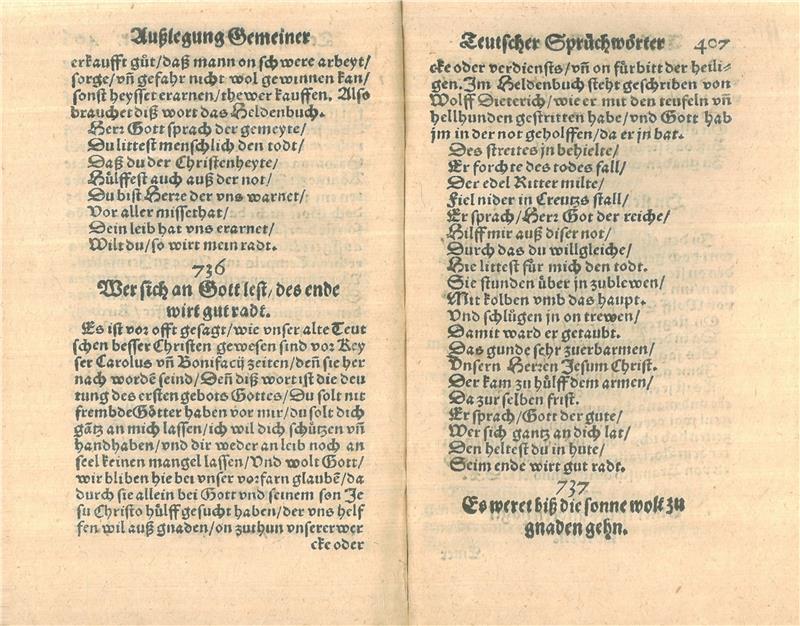 Außlegung Gemeiner
erkaufft gůt/daß mann on schwere arbeyt/
sorge/vñ gefahr nicht wol gewinnen kan/
sonst heysset erarnen/thewer kauffen. Also
brauchet diß wort das Heldenbuch.
Herr Gott sprach der gemeyte/
Du littest menschlich den todt/
Daß du der Christenheyte/
Hülffest auch auß der not/
Du bist Herre der vns warnet/
Vor aller missethat/
Dein leib hat vns erarnet/
Wilt du/so wirt mein radt.
736
Wer sich an Gott lest/des ende
wirt gut radt.
Es ist vor offt gesagt/wie vnser alte Teut
schen besser Christen gewesen sind vor Key
ser Carolus vñ Bonifacij zeiten/deñ sie her
nach wordē seind/Deñ diß wort ist die deu
tung des ersten gebots Gottes/Du solt nit
frembde Götter haben vor mir/du solt dich
gātz an mich lassen/ich wil dich schützen vñ
handhaben/vnd dir weder an leib noch an
seel keinen mangel lassen/Vnd wolt Gott/
wir bliben hie bei vnser vorfarn glaubē/da
durch sie allein bei Gott vnd seinem son Je
su Christo hülff gesucht haben/der vns helf
fen wil auß gnaden/on zuthun vnserer wer
cke oder
Teutscher Sprüchwörter 407
cke oder verdiensts/vñ on fürbitt der heili-
gen. Im Heldenbuch steht geschriben von
Wolff Dieterich/wie er mit den teufeln vñ
hellhunden gestritten habe/vnd Gott hab
jm in der not geholffen/da er jn bat.
Des streites jn behielte/
Er forchte des todes fall/
Der edel Ritter milte/
Fiel nider in Creutzs stall/
Er sprach/Herr Got der reiche/
Hilff mir auß diser not/
Durch das du willgleiche/
Hie littest für mich den todt.
Sie stunden über jn zublewen/
Mit kolben vmb das haupt.
Vnd schlůgen jn on trewen/
Damit ward er getaubt.
Das gunde sehr zuerbarmen/
Vnsern Herren Jesum Christ.
Der kam zu hülff dem armen/
Da zur selben frist.
Er sprach/Gott der gute/
Wer sich gantz an dich lat/
Den heltest du in hute/
Seim ende wirt gut radt.
737
Es weret biß die sonne wolt zu
gnaden gehn.